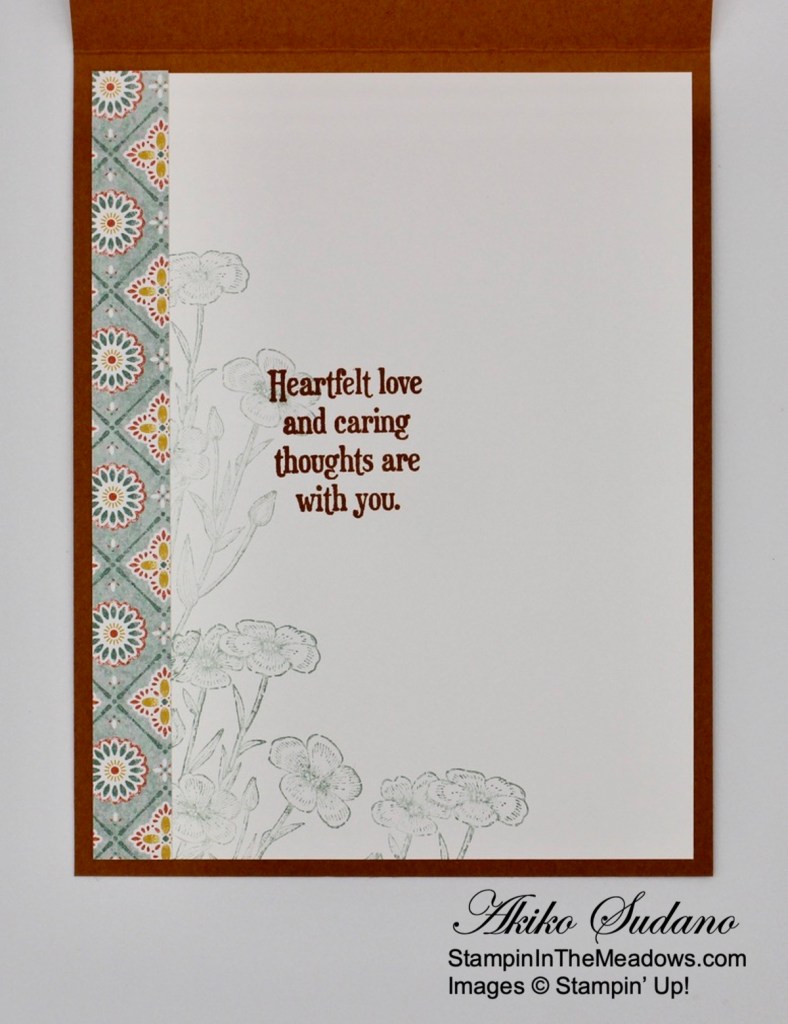 Heartfelt love
and caring
thoughts are
with you.
Akiko Sudano
StampinInTheMeadows.com
Images © Stampin' Up!